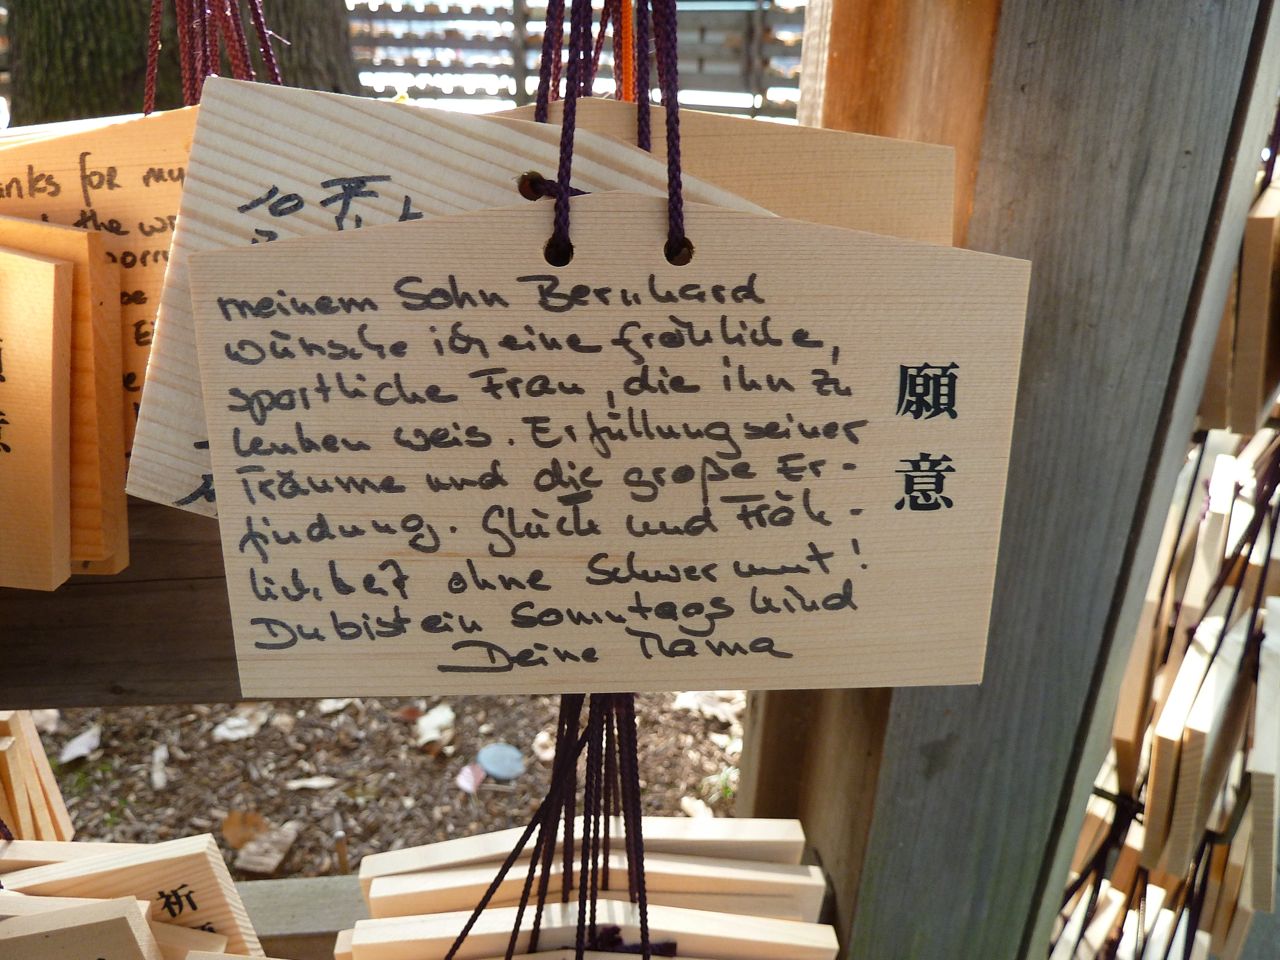 meinem Sohn Bernhard
wünsche ich eine fröhliche,
sportliche Frau, die ihn zu
lenken weis. Erfüllung seiner
Träume und die große Er-
findung. Glück und Fröh-
lichkeit ohne Schwermut!
Du bist ein Sonntagskind
Deine Mama
願意
for my
the
祈